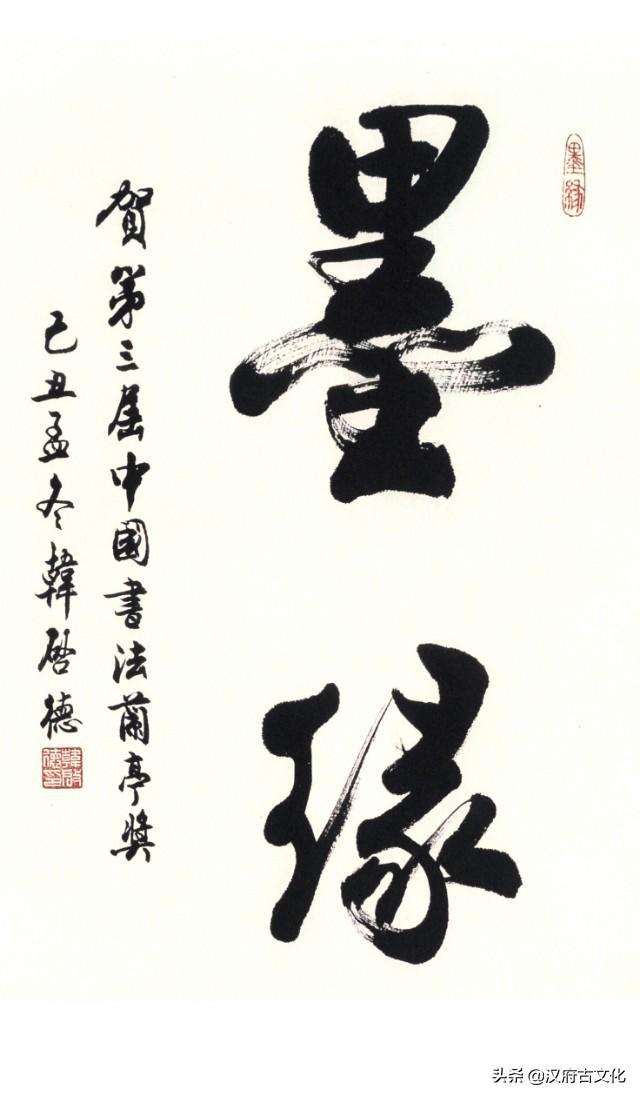 墨缘
墨缘
賀第三届中國書法蘭亭獎
己丑孟冬韓啓德
韓啓德印
头条 @汉府古文化